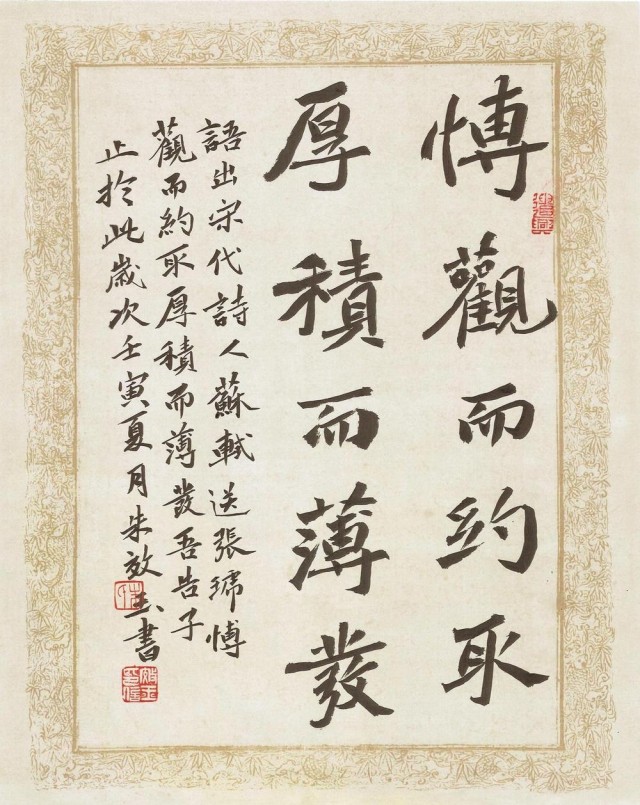 愽觀而約取
厚積而薄發
語出宋代詩人蘇軾送張琥愽
觀而約取厚積而薄發吾告子
止於此歲次壬寅夏月朱效玉書